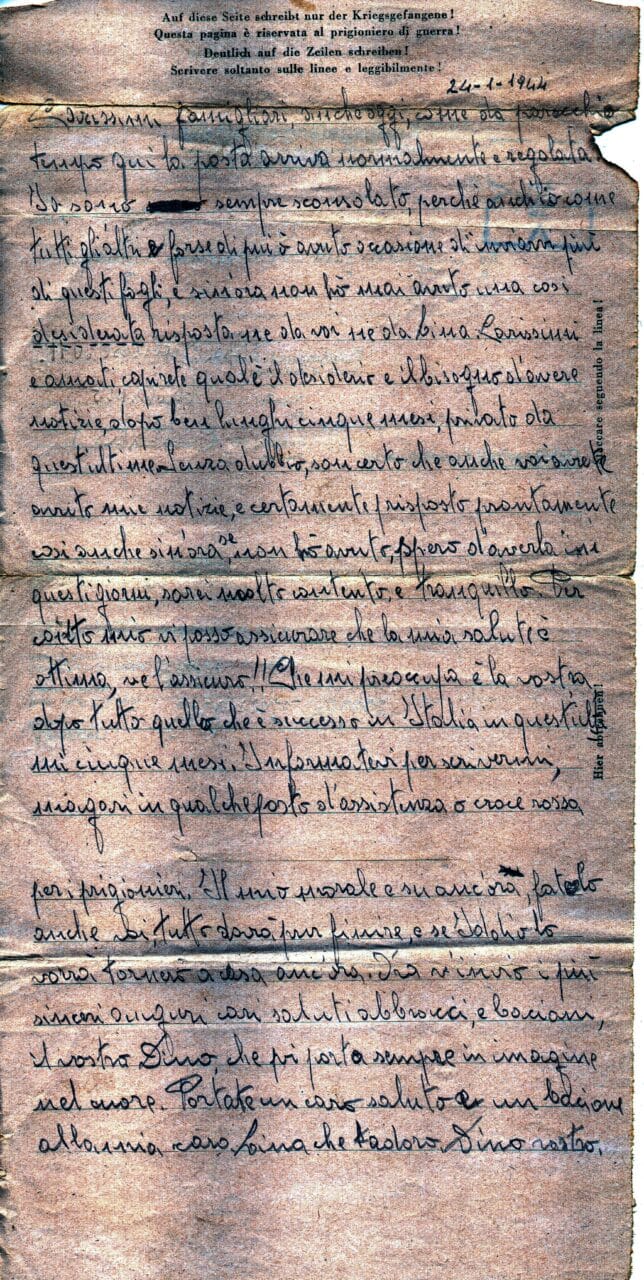 Auf diese Seite schreibt nur der Kriegsgefangene!
Questa pagina è riservata al prigioniero di guerra!
Deutlich auf die Zeilen schreiben!
Scrivere soltanto sulle linee e leggibilmente!
24-1-1944
Carissimi famigliari, anche oggi, come da parecchio
tempo qui la posta arriva normalmente e regolata.
Io sono sempre sconsolato, perchè anch'io come
tutti gli altri e forse di più ò avuto occasione di inviarvi più
di questi fogli, e sin'ora non hò mai avuto una così
desiderata risposta ne da voi ne da Lina. Carissimi
e amati, capirete qual'è il desiderio e il bisogno d'avere
notizie, dopo ben lunghi cinque mesi, privato da
quest'ultime. Senza dubbio, son certo che anche voi avrete
avuto mie notizie, e certamente risposto prontamente
così anche sin'ora, se, non hò avuto, spero d'averla in
questi giorni, sarei molto contento, e tranquillo. Per
conto mio vi posso assicurare che la mia salute è
ottima, ve l'assicuro!! Che mi preocupa è la vostra
dopo tutto quello che è successo in Italia in questi ulti
mi cinque mesi. Informatevi per scrivermi,
magari in qualche posto d'assistenza o croce rossa
per i prigionieri. Il mio morale e su ancora, fatelo
anche voi, tutto dovrà pur finire, e se Iddio lo
vorrà tornerò a casa ancora. Ora v'invio i più
sinceri auguri cari saluti abbracci, e bacioni,
il vostro Dino, che vi porta sempre in imagine
nel cuore. Portate un caro saluto e un bacione
alla mia cara Lina che tadoro. Dino vostro.
staccare seguendo la linea!
Hier abtrennen!